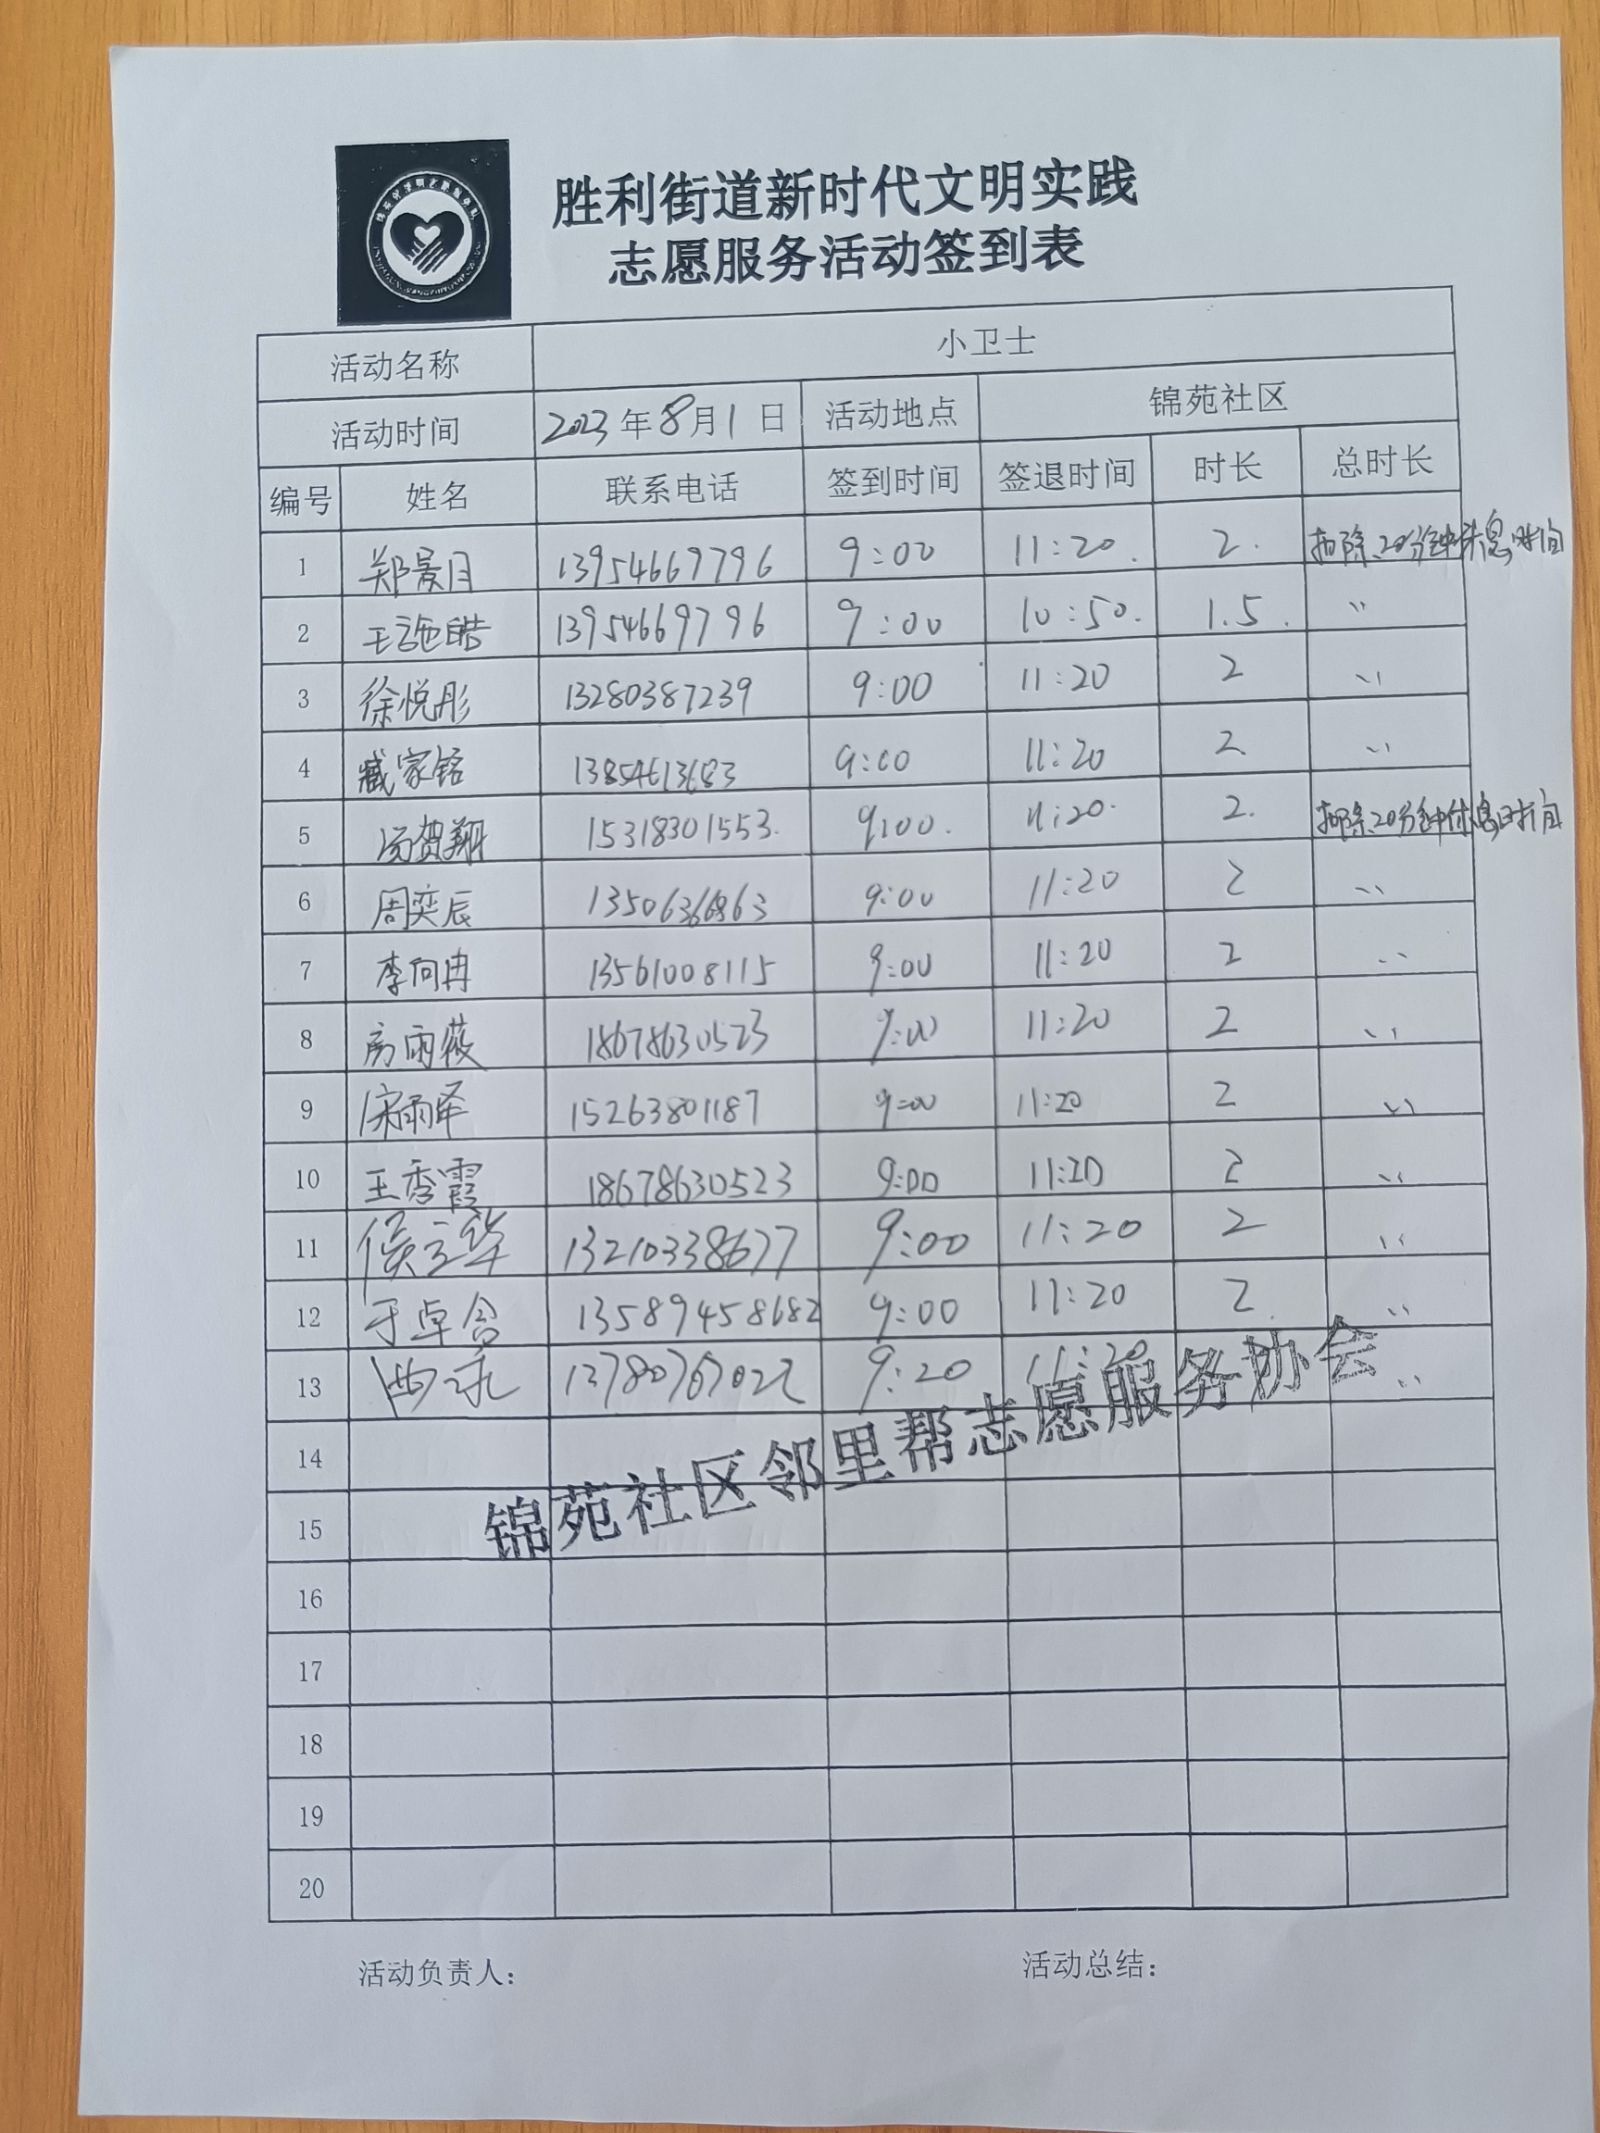 胜利街道新时代文明实践
志愿服务活动签到表
活动名称 小卫士
活动时间 2023年8月1日 活动地点 锦苑社区
编号 姓名 联系电话 签到时间 签退时间 时长 总时长
1 郑景月 13954669796 9:00 11:20. 2. 扣除20分钟休息时间
2 王施皓 13954669796 9:00 10:50. 1.5. 〃
3 徐悦彤 13280387239 9:00 11:20 2 〃
4 臧家铭 13854613683 9:00 11:20 2 〃
5 汤贺翔 15318301553. 9:00. 11:20. 2. 扣除20分钟休息时间
6 周奕辰 13506366863 9:00 11:20 2 〃
7 李向冉 13561008115 9:00 11:20 2 〃
8 房雨薇 18678630523 9:00 11:20 2 〃
9 宋雨泽 15263801187 9:00 11:20 2 〃
10 王秀霞 18678630523 9:00 11:20 2 〃
11 侯立华 13210338677 9:00 11:20 2 〃
12 于卓含 13589458682 9:00 11:20 2. 〃
13 9:20 11:20 〃
14
锦苑社区邻里帮志愿服务协会
15
16
17
18
19
20
活动负责人： 活动总结：